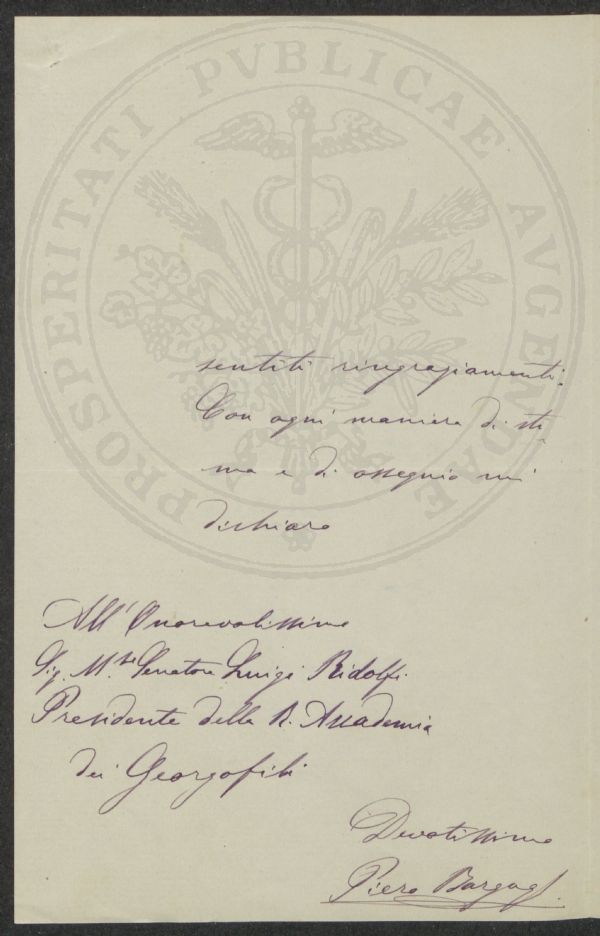 PROSPERITATI PVBLICAE AVGENDAE
sentiti ringraziamenti.
Con ogni maniera di sti-
ma e di ossequio mi
dichiaro
All'Onorevolissimo
Sig. M.se Senatore Luigi Ridolfi
Presidente della R. Accademia
dei Georgofili
Devotissimo
Piero Bargagli